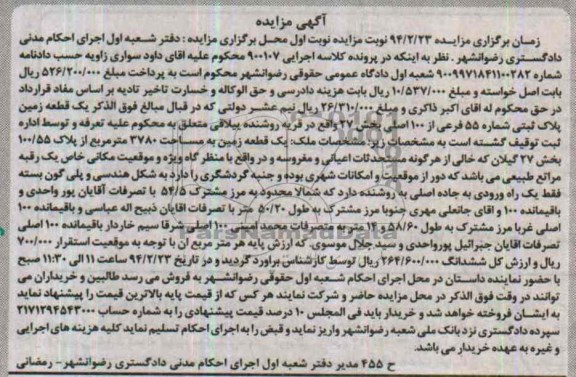 آگهی مزایده
زمـان برگزاری مزایـده ۹۴/۲/۲۳ نوبت مزایده نوبت اول محـل برگزاری مزایده : دفتر شـعبه اول اجرای احکام مدنی
دادگستری رضوانشهر. نظر به اینکه در پرونده کلاسه اجرایی ۹۰۰۱۰۷ محکوم علیه آقای داود سواری زاویه حسب دادنامه
شماره ۹۰۰۹۹۷۱۸۴۱۱۰۰۲۸۲ شعبه اول دادگاه عمومی حقوقی رضوانشهر محکوم است به پرداخت مبلغ ۵۲۶/۲۰۰/۰۰۰ ریال
بابت اصل خواسته و مبلغ ۱۰/۵۳۷/۰۰۰ ریال بابت هزینه دادرسی و حق الوکاله و خسارت تاخیر تادیه بر اساس مفاد قرارداد
در حق محکوم له آقای اکبر ذاکری و مبلغ ۲۶/۳۱۰/۰۰۰ ریال نیم عشـر دولتی که در قبال مبالغ فوق الذکر یک قطعه زمین
پلاک ثبتی شماره ۵۵ فرعی از ۱۰۰ اصلی بخش ۲۷ واقع در قریه روشنده ییلاقی متعلق به محکوم علیه تعرفه و توسط اداره
ثبت توقیف گشته است به مشخصات زیر: مشخصات ملک: یک قطعه زمین به مساحت ۳۷۸۰ مترمربع از پلاک ۱۰۰/۵۵
بخش ۲۷ گیلان که خالی از هرگونه مستحدثات اعیانی و مفروسه و در واقع با منظر گاه ویژه و موقعیت مکانی خاص یک رقبه
مراتع طبیعی می باشد که دور از موقعیت و امکانات شهری بوده و جنبه گردشگری را دارد به شکل هندسی و پلی گون بسته
فقط یک راه ورودی به جاده اصلی به روشنده دارد که شمالا محدود به مرز مشترک ۵۴/۵ با تصرفات آقایان پور واحدی و
باقیمانده ۱۰۰ و اقای جانعلی مهری جنوبا مرز مشترک به طول ۵۰/۲۰ متر با تصرفات اقایان ذبیح اله عباسی و باقیمانده ۱۰۰
اصلی غربا مرز مشترک به طول ۵۸/۶۰ و ۱۴ متر به تصرفات محمد امینی ۱۰۰ اصلی شرقا سیم خاردار باقیمانده ۱۰۰ اصلی
تصرفات اقایان جبرائیل پورواحدی و سیدجلال موسوی. که ارزش پایه هر متر مربع آن با توجه به موقعیت استقرار ۷۰/۰۰۰
ریال و ارزش کل ششدانگ ۲۶۴/۶۰۰/۰۰۰ ریال توسط کارشناس براورد گردید و در تاریخ ۹۴/۲/۲۳ ساعت ۱۱ الی ۱۱:۳۰ صبح
با حضور نماینده داستان در محل اجرای احکام شـعبه اول حقوقی رضوانشـهر به فروش می رسد طالبین و خریداران می
توانند در وقت فوق الذکر در محل مزایده حاضر و شرکت نمایند هر کس که از قیمت پایه بالاترین قیمت را پیشنهاد نماید
به ایشـان فروخته خواهد شد و خریدار باید فی المجلس ۱۰ درصد قیمت پیشنهادی را به شماره حساب ۲۱۷۱۲۹۴۵۴۳۰۰۰
سپرده دادگستری نزد بانک ملی شعبه رضوانشهر واریز نماید و قبض را به اجرای احکام تسلیم نماید کلیه هزینه های اجرایی
و غیره به عهده خریدار می باشد.
ح ۴۵۵ مدیر دفتر شعبه اول اجرای احکام مدنی دادگستری رضوانشهر- رمضانی